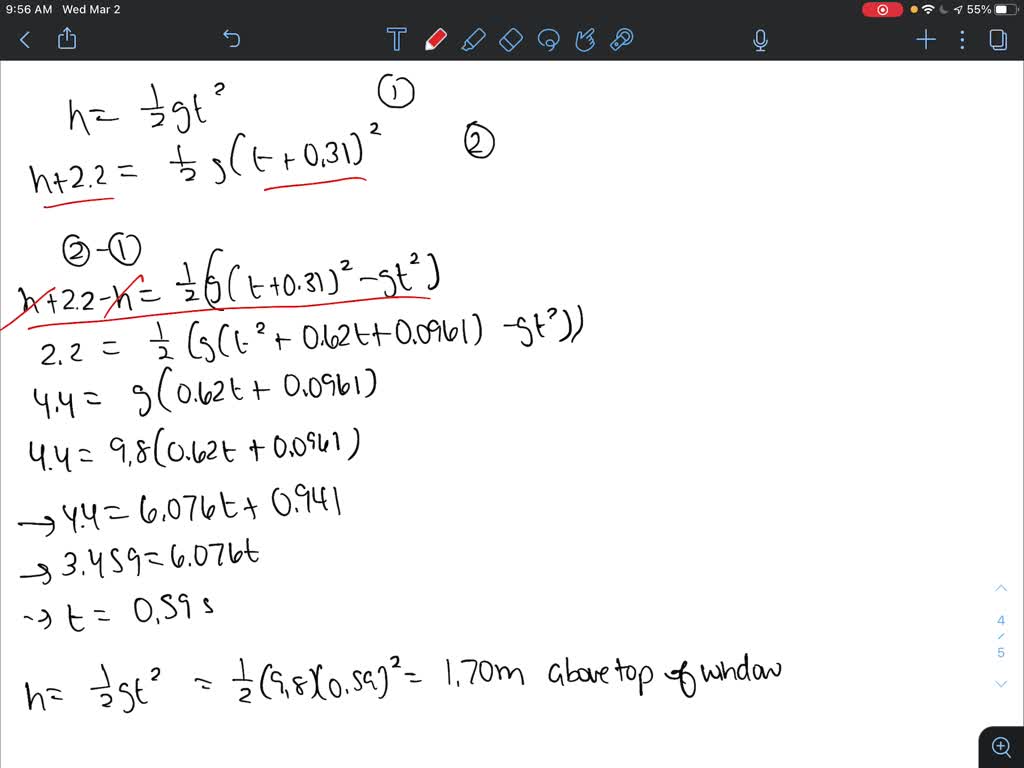 9:56 AM Wed Mar 2
55%
h= 1/2 gt² ①
h+2.2 = 1/2 g(t+0.31)² ②
②-①
h+2.2-h= 1/2(g(t+0.31)²-gt²)
2.2 = 1/2 (g(t²+0.62t+0.0961) -gt²))
4.4= g(0.62t+ 0.0961)
4.4= 9,8(0.62t +0.0961)
→4.4=6.076t+ 0.941
→3.459=6.076t
→ t= 0.59 s
h= 1/2 gt² = 1/2 (9,8)(0.59)²= 1.70m above top of window
4
/
5